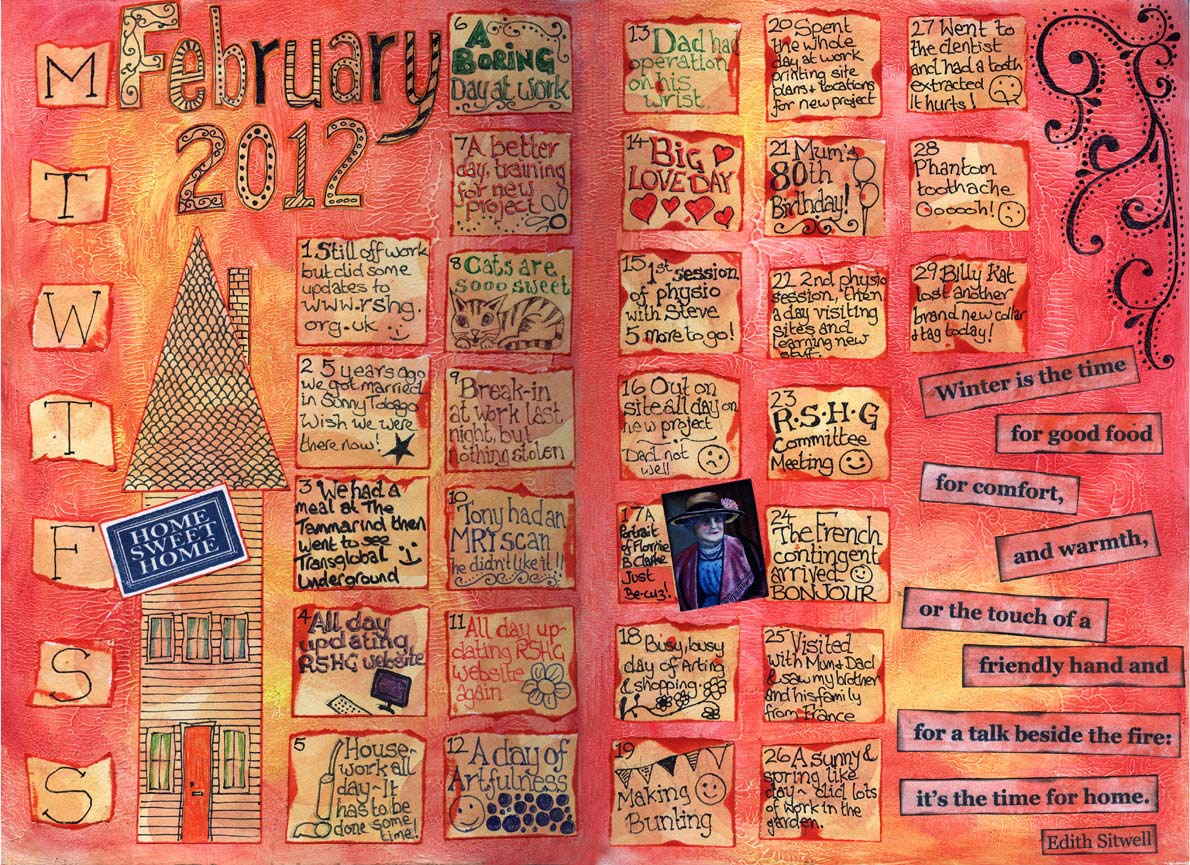 February
2012
M
T
W
T
F
S
S
HOME
SWEET
HOME
1. Still off work
but did some
updates to
www.rshg.
org.uk
2 5 years ago
we got married
in Sunny Tobago
Wish we were
there now!
3 We had a
meal at The
Tammarind then
went to see
Transglobal
Underground
4 All day
updating
RSHG website
5 House-
work all
day~It
has to be
done some
time!
6
A
BORING
Day at Work
7 A better
day, training
for new
project
8 Cats are
sooo sweet
9 Break-in
at work last
night, but
nothing stolen
10
Tony had an
MRI scan
he didn't like it!!
11 All day up-
dating RSHG
website
again
12 A day of
Artfulness
13 Dad had
operation
on his
wrist.
14 BIG
LOVE DAY
15 1st session
of physio
with Steve
5 more to go!
16 Out on
site all day on
new project
Dad not
well
17 A
Portrait
of Florrie
B Clarke
Just
Be-cuz!
18 Busy, busy
day of Arting
& shopping.
19
Making
Bunting
20 Spent
the whole
day at work
printing site
plans & locations
for new project
21 Mum's
80th
Birthday!
22 2nd physio
session, then
a day visiting
sites and
learning new
stuff.
23
R.S.H.G
Committee
Meeting
24
The French
contingent
arrived
BONJOUR
25 Visited
with Mum & Dad
& saw my brother
and his family
from France
26 A sunny &
spring like
day~ did lots
of work in the
garden.
27 Went to
the dentist
and had a tooth
extracted
it hurts!
28
Phantom
toothache
Oooooh!
29 Billy Kat
lost another
brand new collar
& tag today!
Winter is the time
for good food
for comfort,
and warmth,
or the touch of a
friendly hand and
for a talk beside the fire:
it's the time for home.
Edith Sitwell